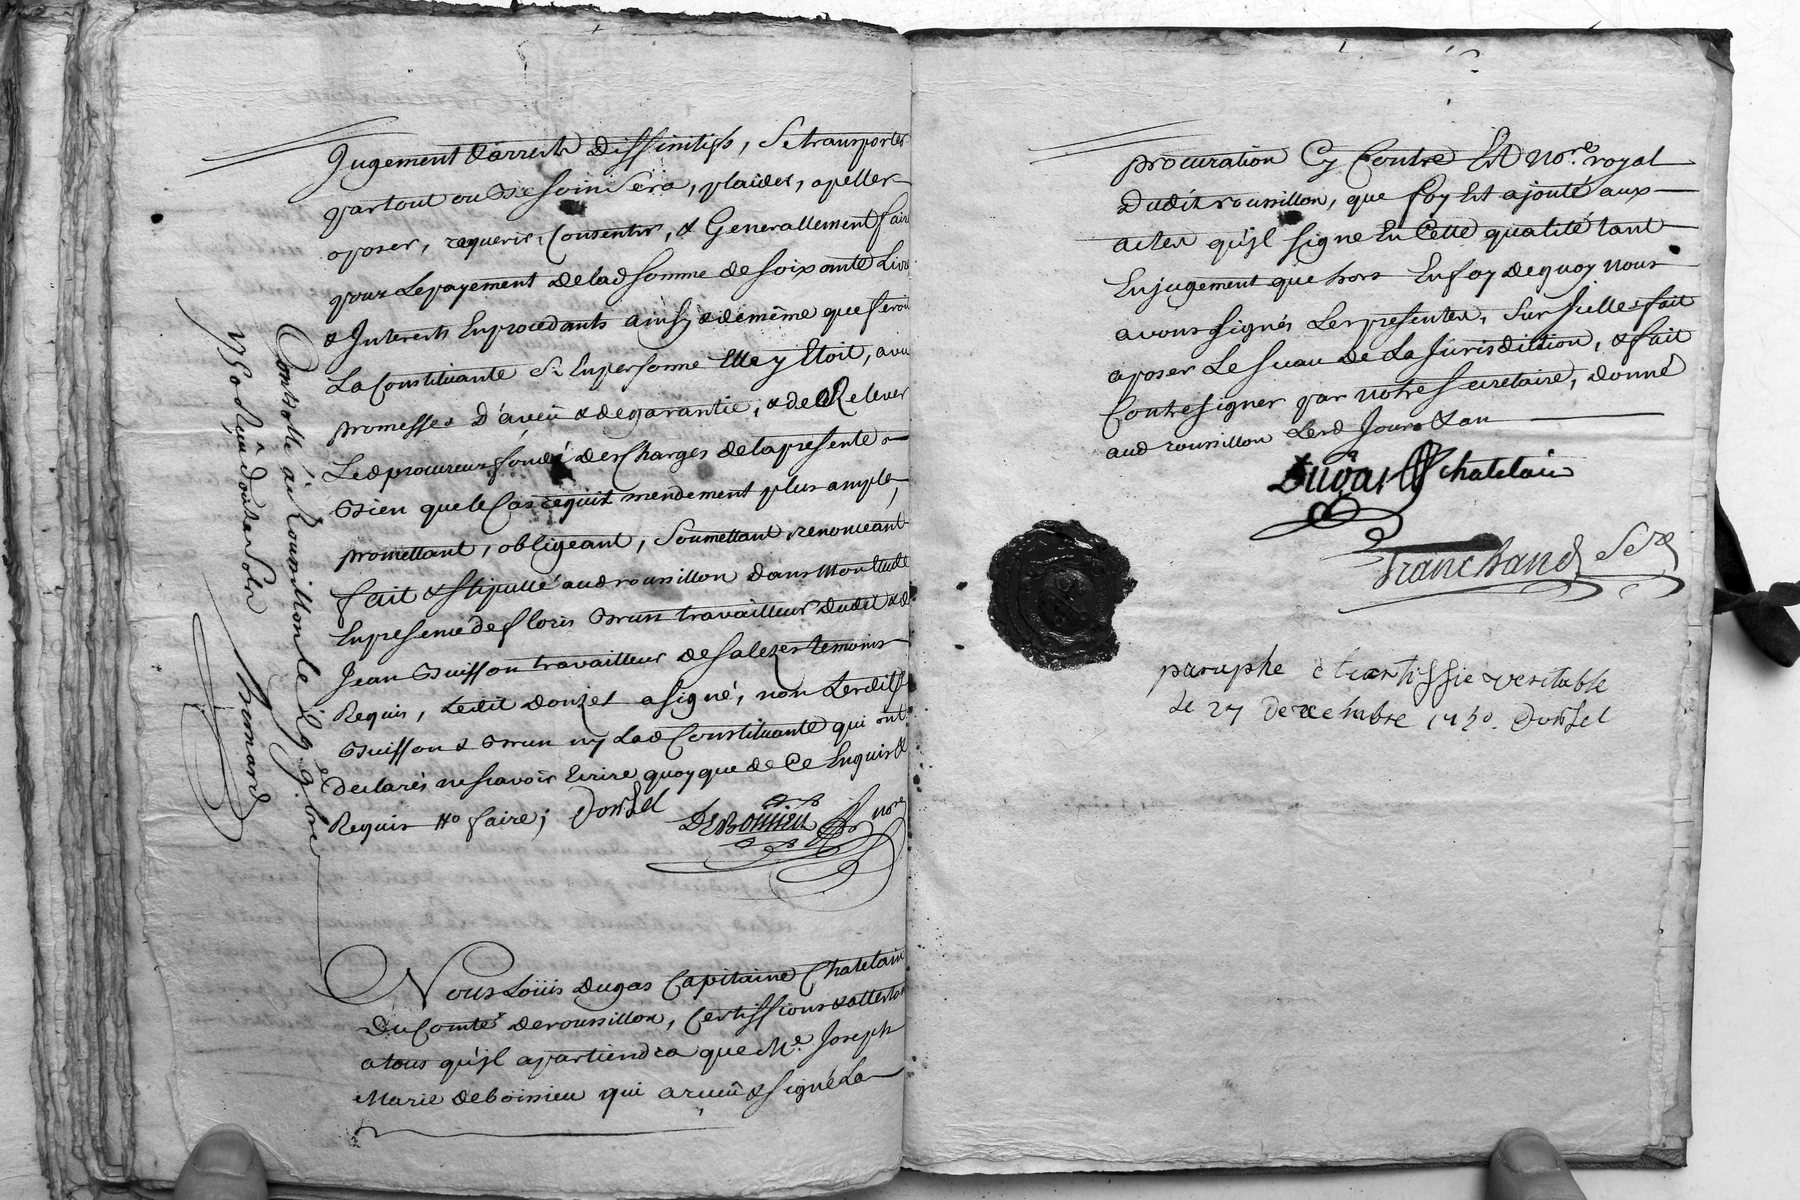 Jugement darrests deffinitifs, se transporter
partout ou besoin sera, plaider, apeller
oposer, requerir, Consentir, & Generallement faire
pour le payement de lad somme de soixante Livres
& Interests En procedants ainsy & de même que feroit
La Constituante Si En personne Elle y Etoit, avec
promesses D'aveu & de garantie, & de Relever
Led procureur fondé des Charges de la presente
Bien que le Cas requit mendement plus ample,
promettant, obligeant, Soumettant, renonceant
fait & stipullé aud roussillon dans mon Etude
En presence de floris Brun travailleur dudit & de
Jean Buisson travailleur de Salezes temoins
Requis, Ledit donzel a signé, non Lesdits
Buisson & Brun ny Lad Constituante qui ont
declarés ne scavoir Ecrire quoy que de Ce Enquis &
Requis de faire; Donzel
DeBoissieu nore
Controllé à Roussillon le 29 9bre
1750 Reçu douze Sols
Bernard
Nous Loüis dugas Capitaine Chatelain
Du Comté de roussillon, Certiffions & attestons
a tous qu'jl apartiendra que Me Joseph
Marie de boissieu qui a receu & signé La
procuration Cy Contre Est nore royal
Dudit roussillon, que foy Est ajouté aux
actes qu'jl signe En Cette qualité tant
En jugement que hors En foy de quoy nous
avons signés Les presentes, Sur jcelle fait
aposer Le sceau de La Jurisdiction, & fait
Contresigner par notre secretaire, donné
aud roussillon Lesd Jour & an
Dugas Chatelain
Tranchand Secre
paraphe et certiffie veritable
le 27 decembre 1750. Donzel